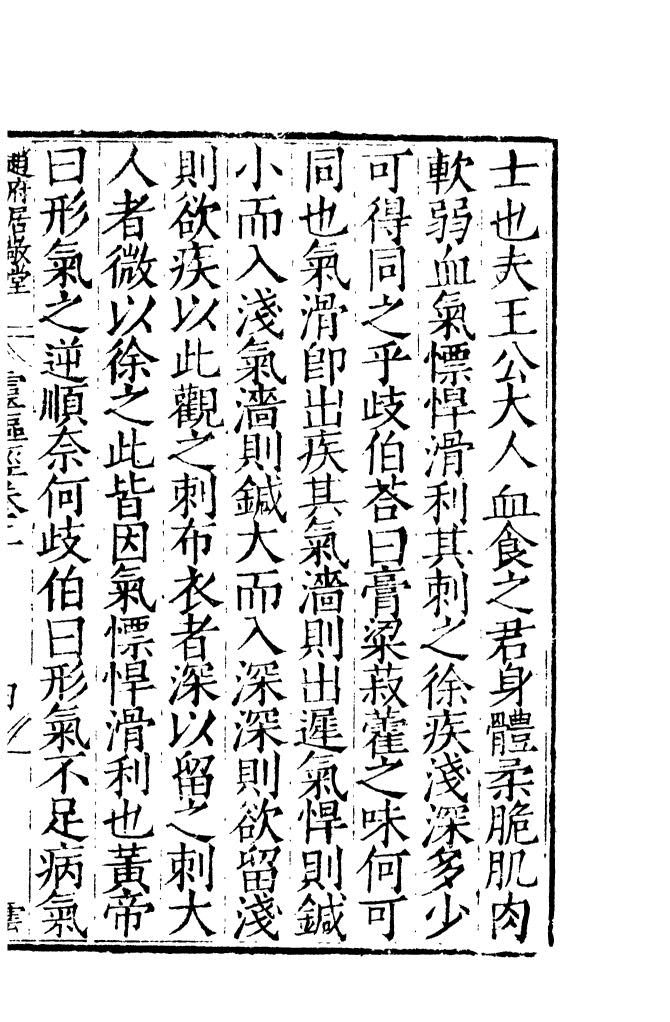 士也夫王公大人血食之君身體柔脆肌肉
軟弱血氣慓悍滑利其刺之徐疾淺深多少
可得同之乎歧伯荅曰膏粱菽藿之味何可
同也氣滑卽出疾其氣濇則出遲氣悍則鍼
小而入淺氣濇則鍼大而入深深則欲留淺
則欲疾以此觀之刺布衣者深以留之刺大
人者微以徐之此皆因氣慓悍滑利也黃帝
曰形氣之逆順奈何歧伯曰形氣不足病氣
趙府居敬堂